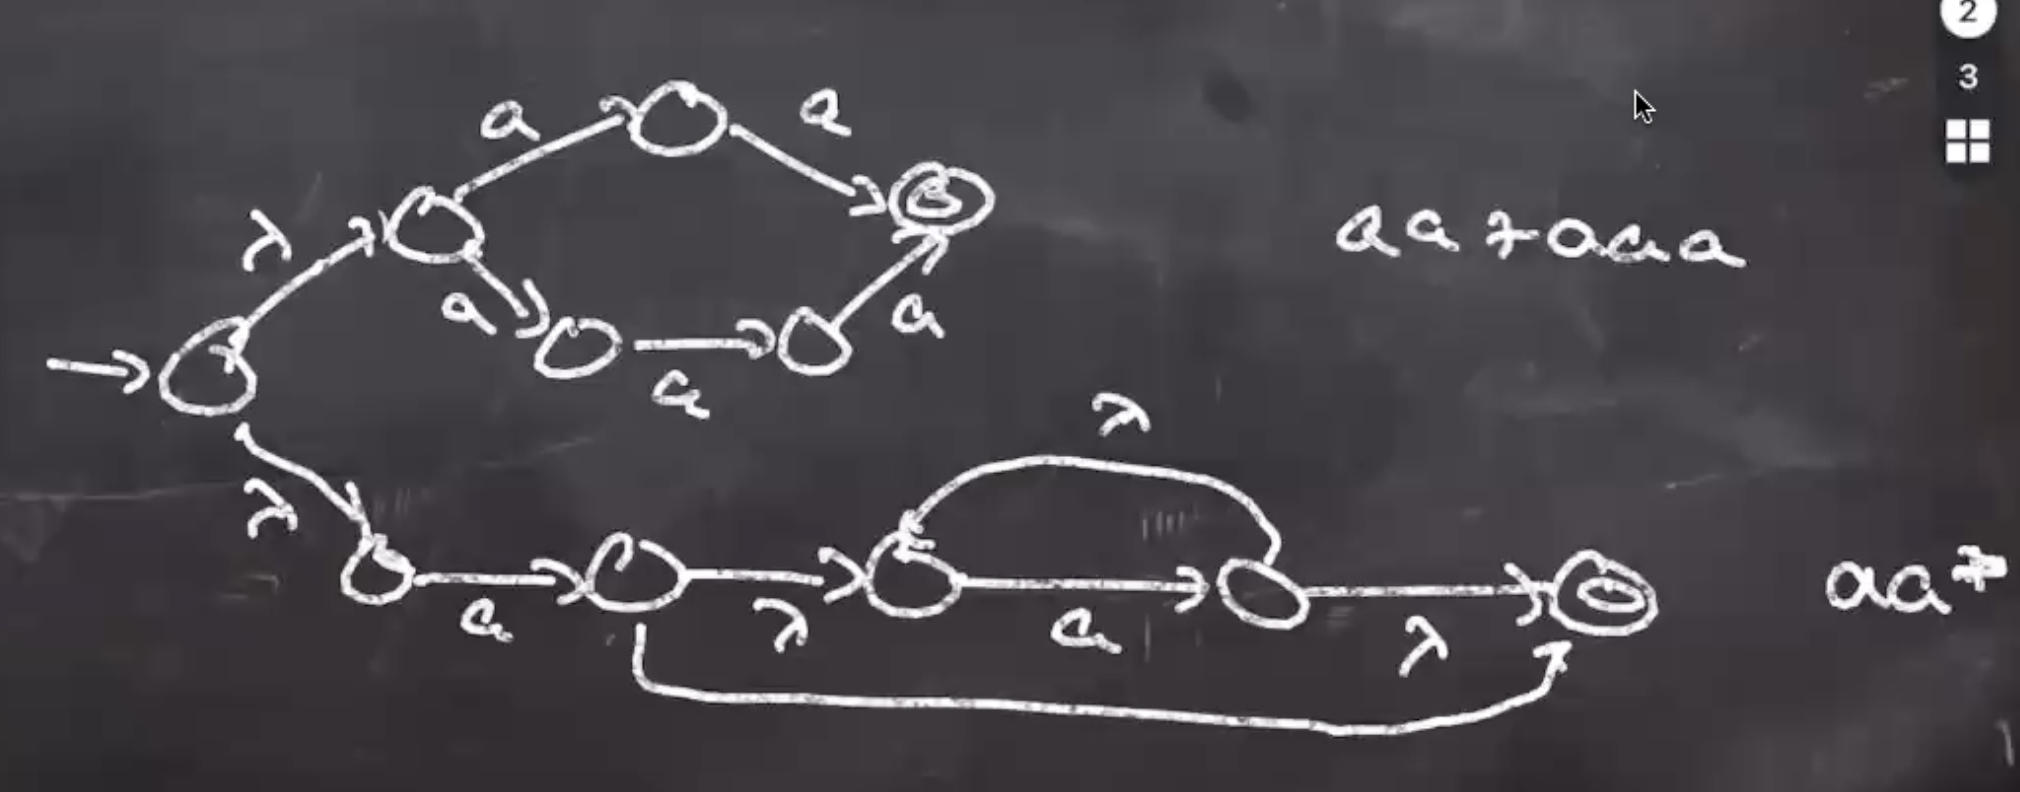 2
3
a a
λ
aa+aaa
a a
a
λ
λ
a λ a λ
aa*